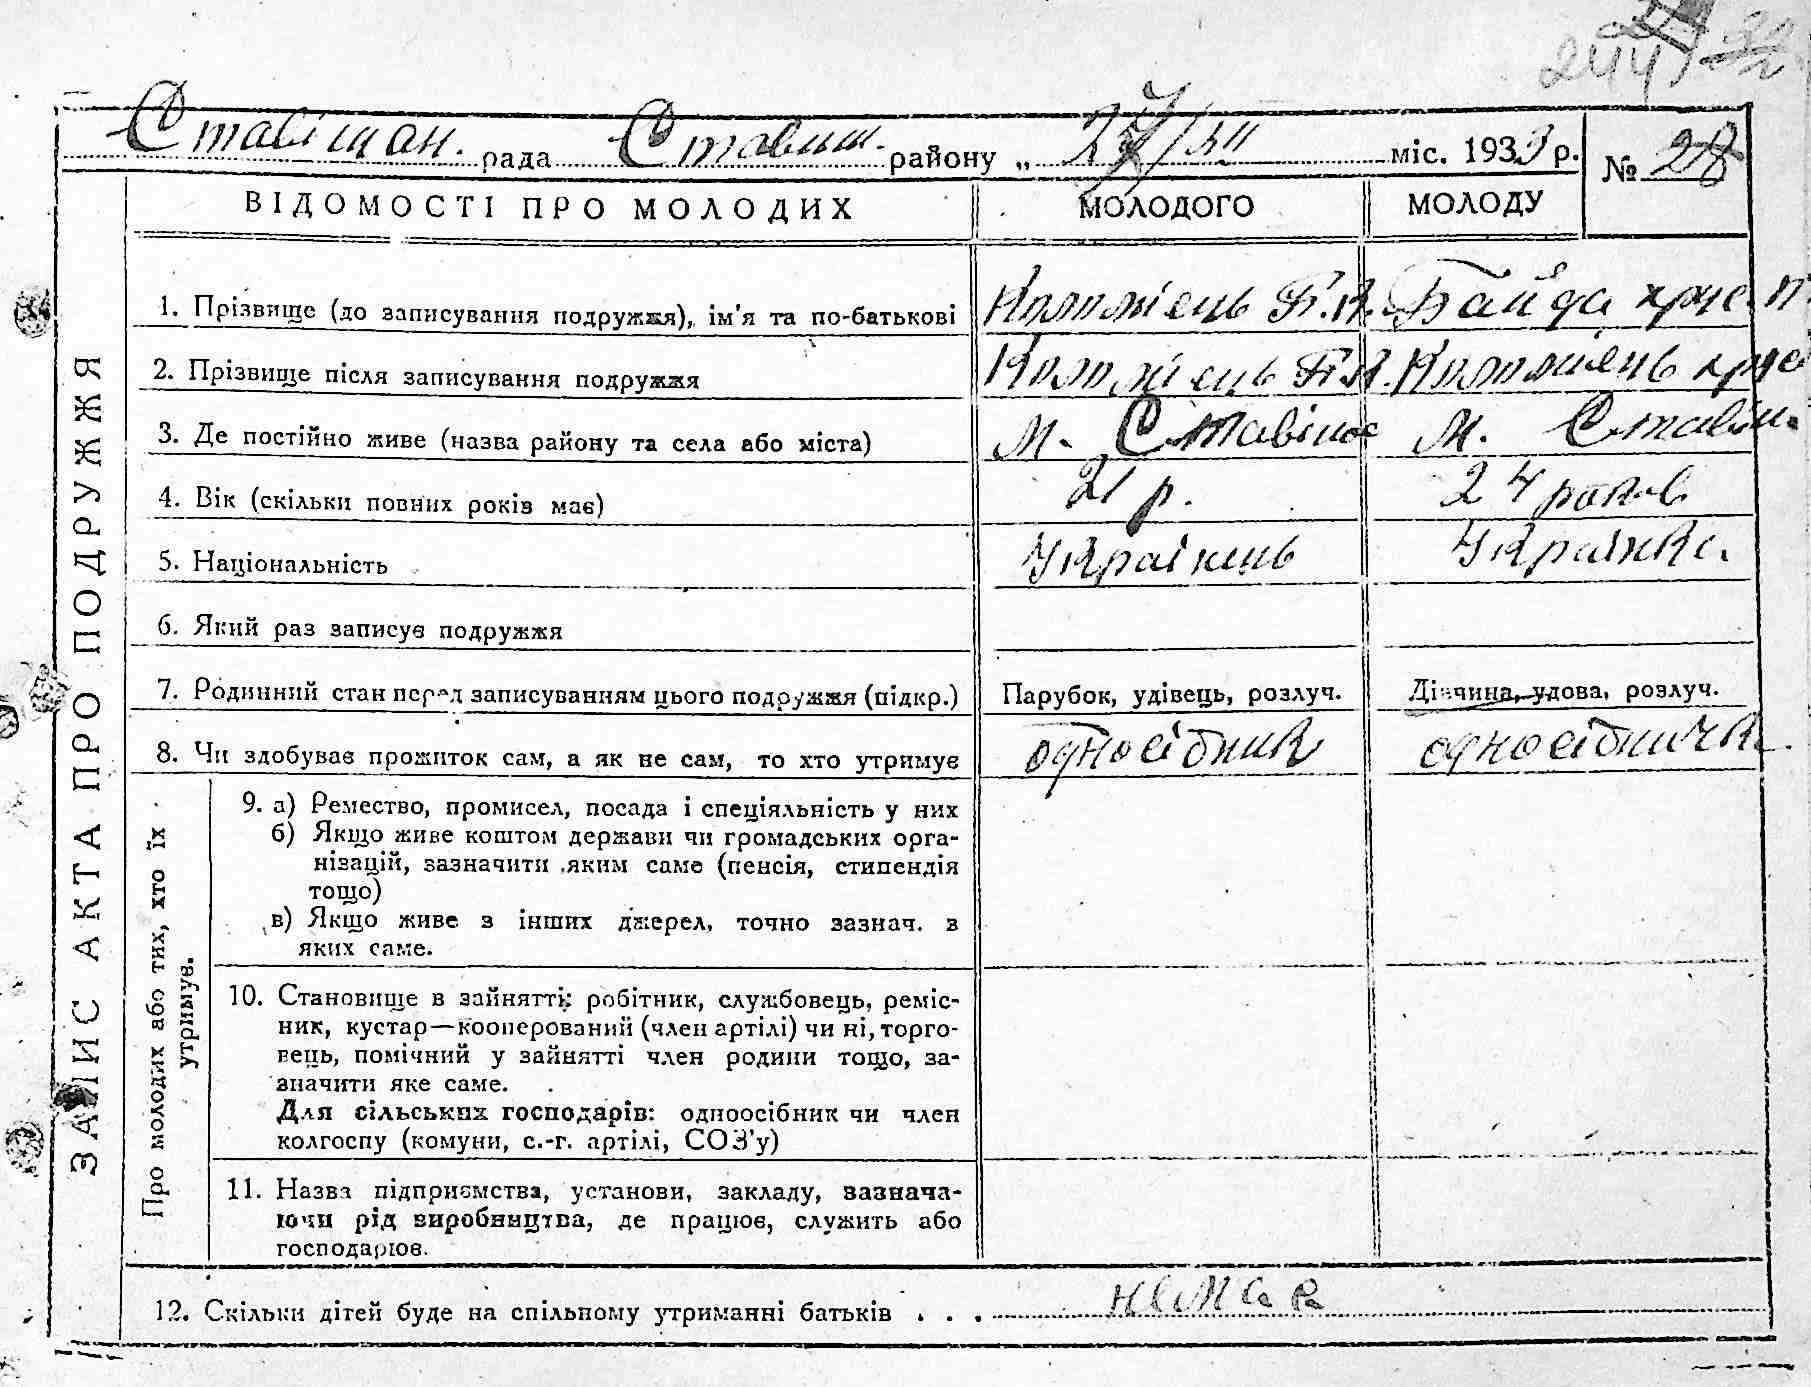 2447
Ставіщан. рада Ставищ. району „ 27/XII міс. 1933 р. № 28
ВІДОМОСТІ ПРО МОЛОДИХ МОЛОДОГО МОЛОДУ
ЗАПИС АКТА ПРО ПОДРУЖЖЯ
1. Прізвище (до записування подружжя), ім'я та по-батькові Коломієць Байда хрис. п
2. Прізвище після записування подружжя Коломієць Коломиєць хрис
3. Де постійно живе (назва району та села або міста) м. Ставіще м. Ставіщ.
4. Вік (скільки повних років має) 21 р. 24 років
5. Національність Українець Українка
6. Який раз записує подружжя
7. Родинний стан перед записуванням цього подружжя (підкр.) Парубок, удівець, розлуч. Дівчина, удова, розлуч.
8. Чи здобуває прожиток сам, а як не сам, то хто утримує односібник односібничка
Про молодих або тих, хто їх
утримує.
9. а) Ремество, промисел, посада і спеціяльність у них
б) Якщо живе коштом держави чи громадських орга-
нізацій, зазначити яким саме (пенсія, стипендія
тощо)
в) Якщо живе з інших джерел, точно зазнач. з
яких саме.
10. Становище в зайнятті: робітник, службовець, реміс-
ник, кустар—кооперований (член артілі) чи ні, торго-
вець, помічний у зайнятті член родини тощо, за-
значити яке саме.
Для сільських господарів: одноосібник чи член
колгоспу (комуни, с.-г. артілі, СОЗ'у)
11. Назва підприємства, установи, закладу, зазнача-
ючи рід виробництва, де працює, служить або
господарює.
12. Скільки дітей буде на спільному утриманні батьків . . . немає